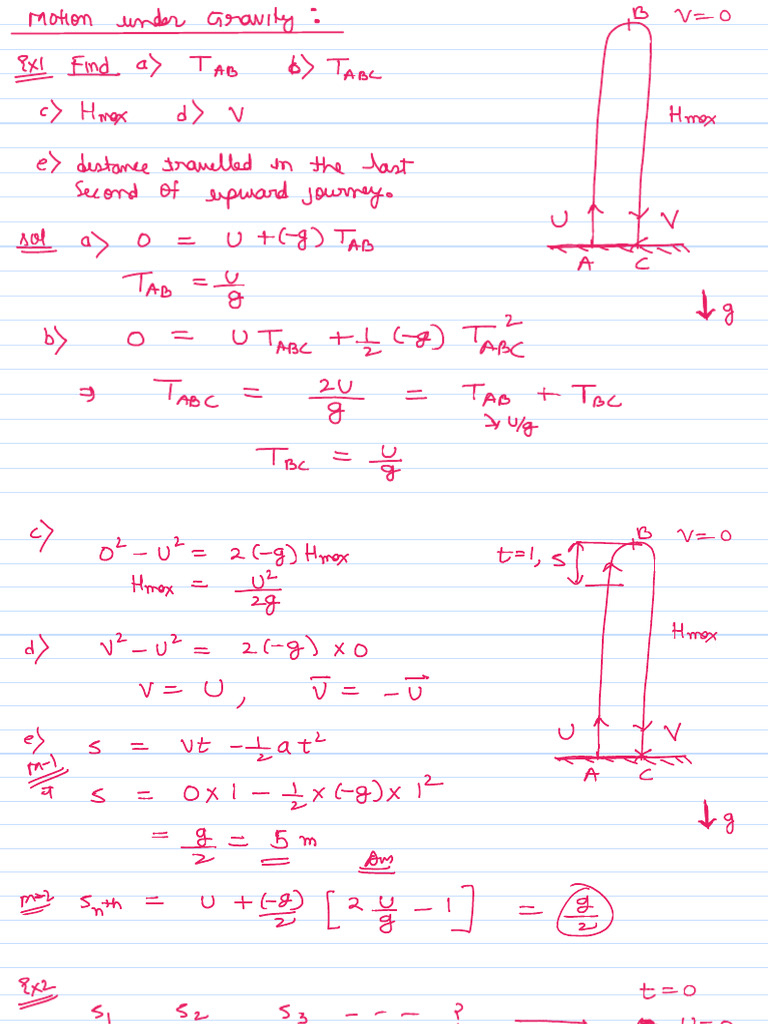 Motion under Gravity :
B V=0
Ex1 Find a> T_AB b> T_ABC
c> Hmax d> V
Hmax
e> distance travelled in the last
second of upward journey.
U V
A C
sol a> 0 = U +(-g) T_AB
T_AB = U/g
↓ g
b> 0 = U T_ABC + 1/2 (-g) T_ABC²
⇒ T_ABC = 2U/g = T_AB + T_BC
↘ U/g
T_BC = U/g
c> 0² - U² = 2(-g) Hmax
B V=0
t=1, S
Hmax = U²/2g
Hmax
d> V² - U² = 2(-g) × 0
V = U, V̄ = -U⃗
U V
A C
e> S = Vt - 1/2 a t²
m-1
S = 0×1 - 1/2 × (-g) × 1²
↓ g
= g/2 = 5 m
Ans
m-2 S_nth = U + (-g)/2 [2 U/g - 1] = g/2
Ex2 t=0
S₁ S₂ S₃ - - - - ?
U=0